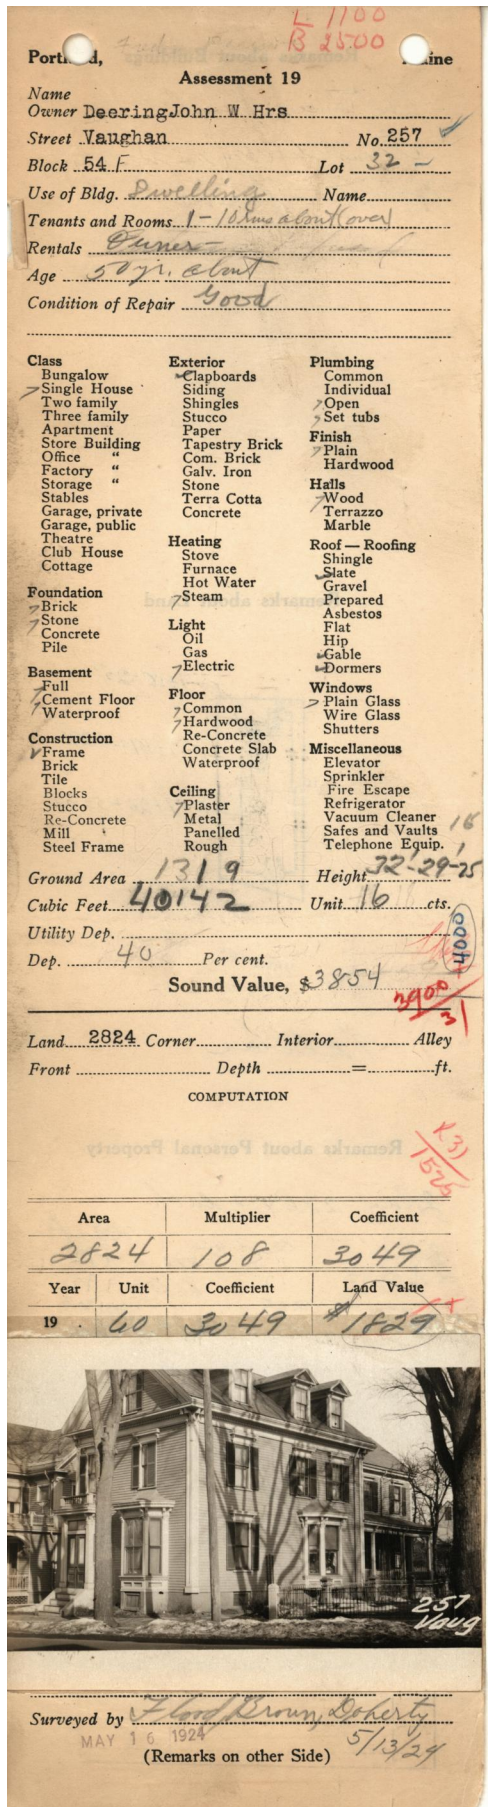 L 1100
B 2500
Portland, Maine
Assessment 19
Name
Owner Deering John W Hrs
Street Vaughan No. 257
Block 54 F Lot 32 -
Use of Bldg. Dwelling Name
Tenants and Rooms 1-10 rms about (over)
Rentals Owner-
Age 50 yr. about
Condition of Repair Good
Class
Bungalow
Single House
Two family
Three family
Apartment
Store Building
Office "
Factory "
Storage "
Stables
Garage, private
Garage, public
Theatre
Club House
Cottage
Foundation
Brick
Stone
Concrete
Pile
Basement
Full
Cement Floor
Waterproof
Construction
Frame
Brick
Tile
Blocks
Stucco
Re-Concrete
Mill
Steel Frame
Exterior
Clapboards
Siding
Shingles
Stucco
Paper
Tapestry Brick
Com. Brick
Galv. Iron
Stone
Terra Cotta
Concrete
Heating
Stove
Furnace
Hot Water
Steam
Light
Oil
Gas
Electric
Floor
Common
Hardwood
Re-Concrete
Concrete Slab
Waterproof
Ceiling
Plaster
Metal
Panelled
Rough
Plumbing
Common
Individual
Open
Set tubs
Finish
Plain
Hardwood
Halls
Wood
Terrazzo
Marble
Roof — Roofing
Shingle
Slate
Gravel
Prepared
Asbestos
Flat
Hip
Gable
Dormers
Windows
Plain Glass
Wire Glass
Shutters
Miscellaneous
Elevator
Sprinkler
Fire Escape
Refrigerator
Vacuum Cleaner
Safes and Vaults 16
Telephone Equip.
Ground Area 1319 Height 32-29-25
Cubic Feet 40142 Unit 16 cts.
Utility Dep.
4000
Dep. 40 Per cent.
Sound Value, $3854
3900
31
Land 2824 Corner Interior Alley
Front Depth = ft.
COMPUTATION
1525
Area Multiplier Coefficient
2824 108 3049
Year Unit Coefficient Land Value
19 60 3049 $1829
257
Vaug
Surveyed by Flood, Brown, Doherty
MAY 16 1924 5/13/24
(Remarks on other Side)